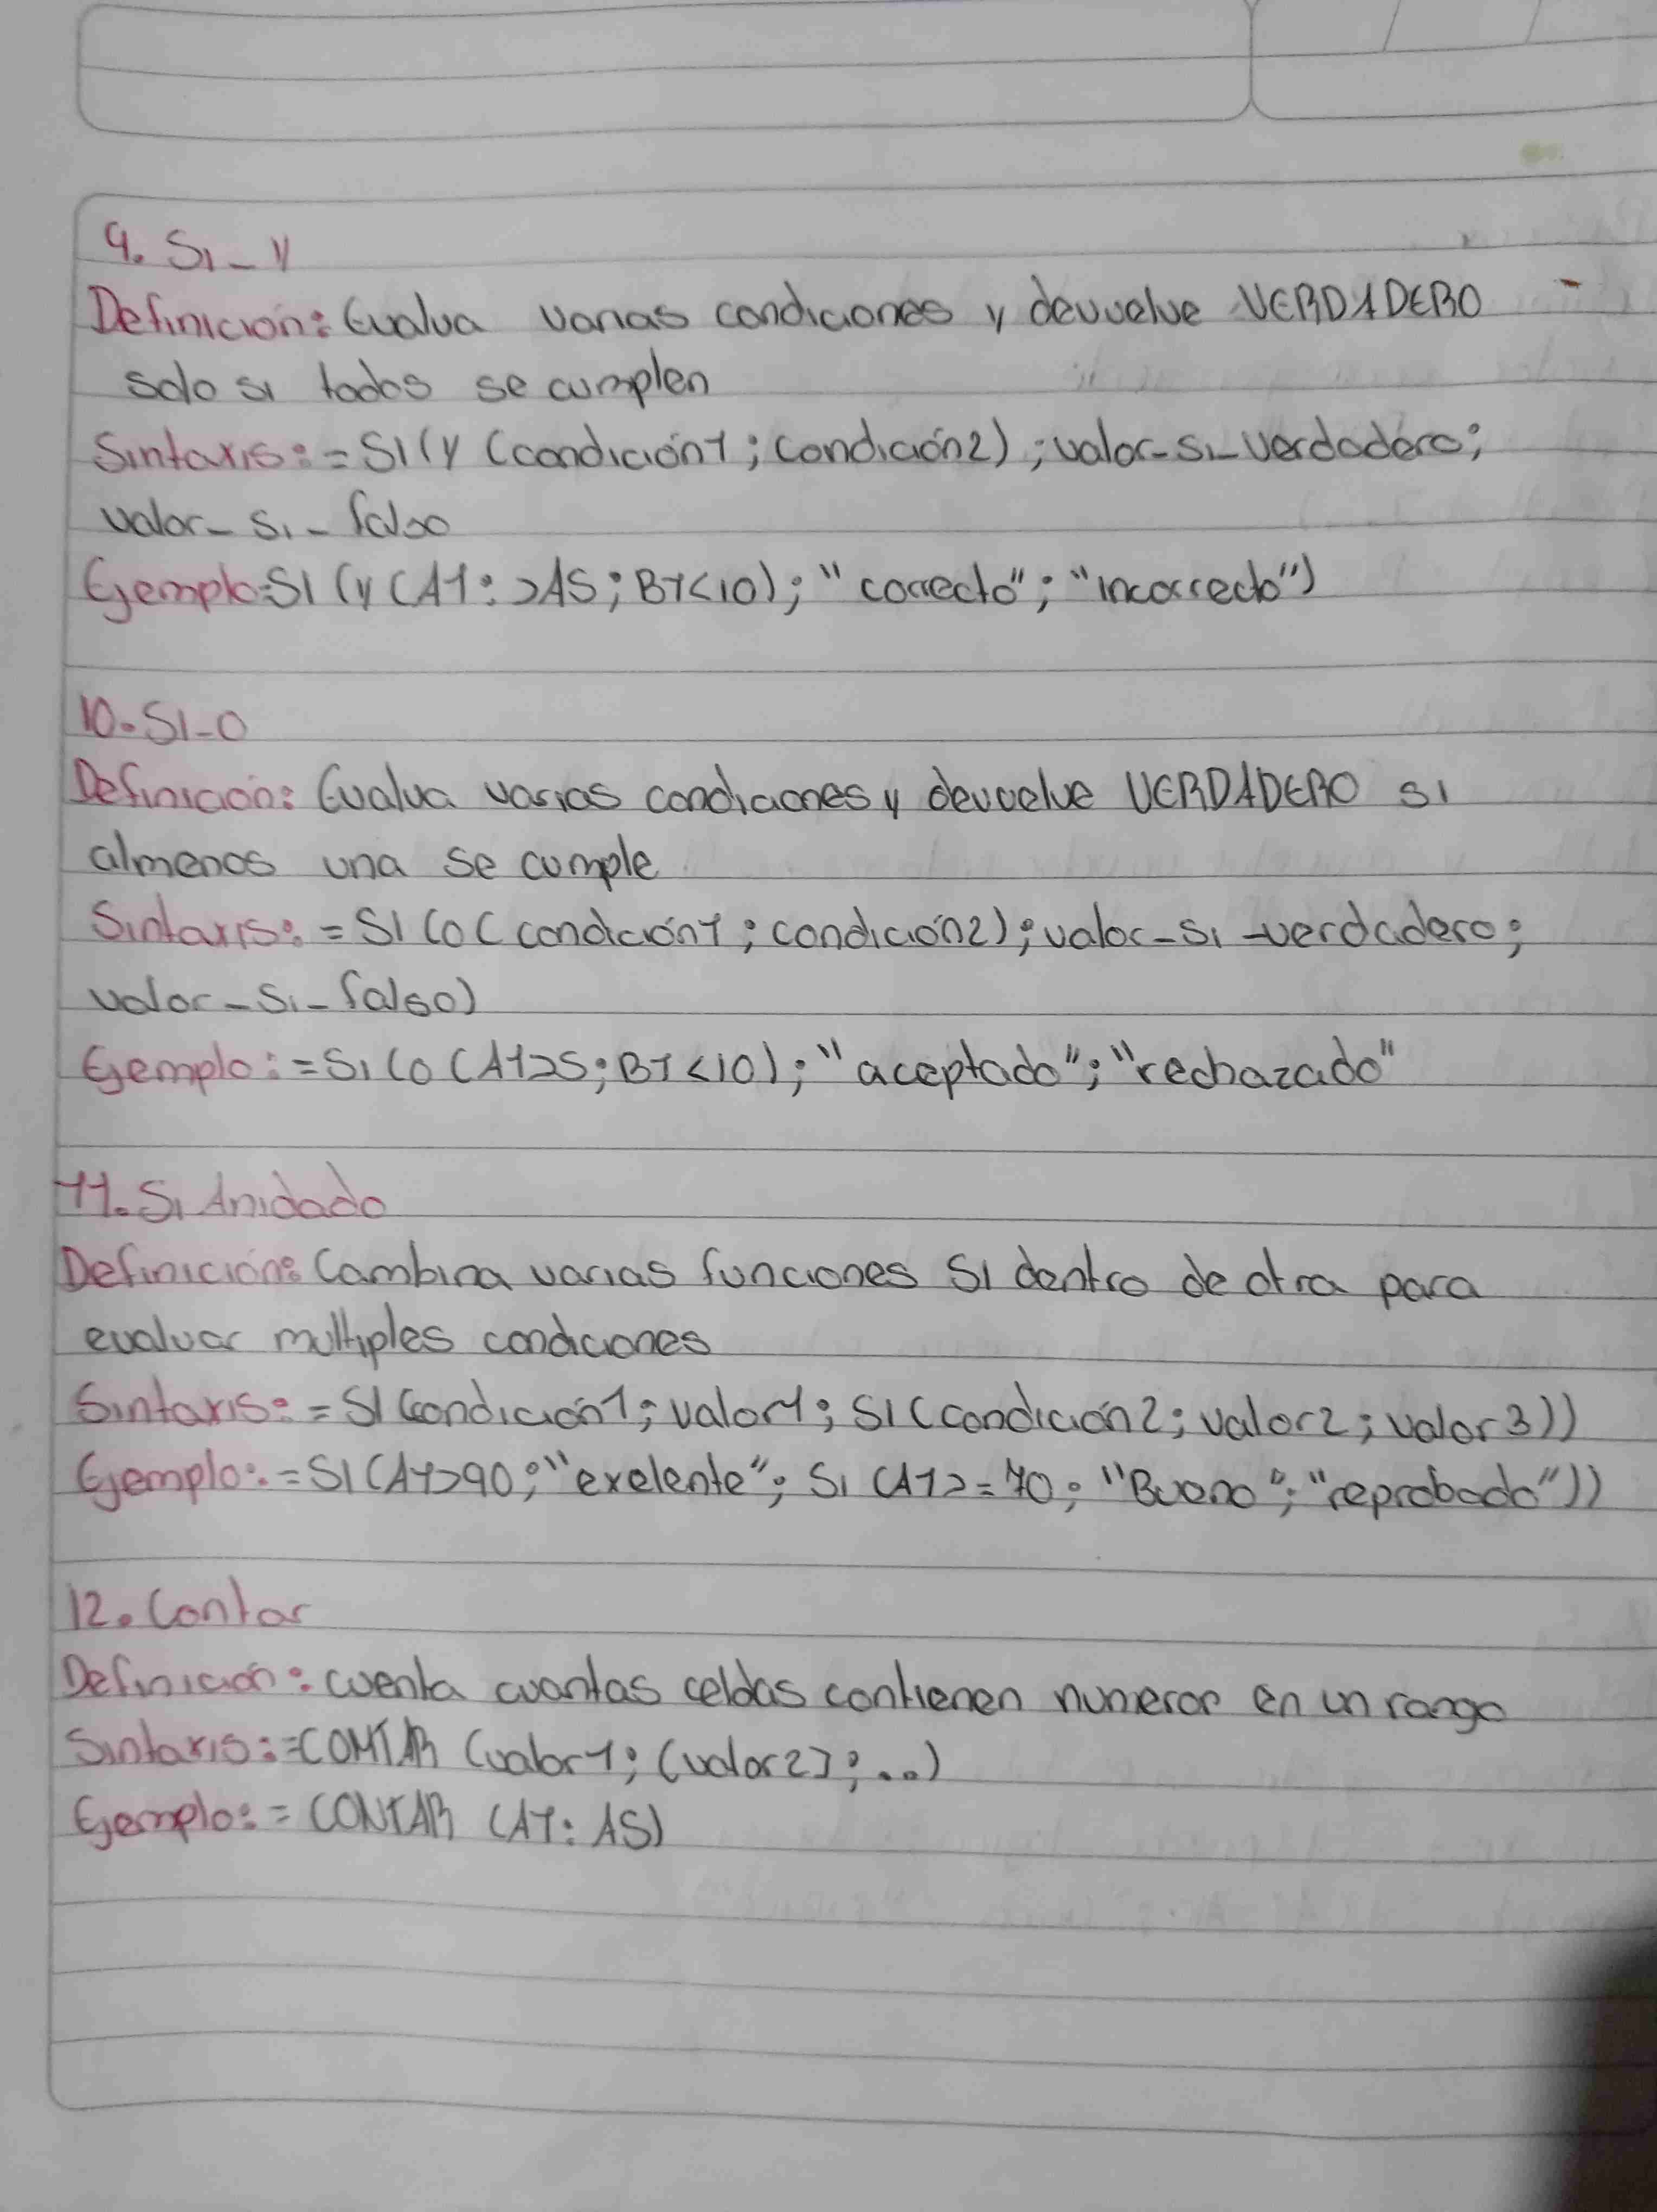 9. SI_Y
Definición: Evalua varias condiciones y devuelve VERDADERO
solo si todos se cumplen
Sintaxis: =SI(y (condición1; condición2); valor_si_verdadero;
valor_si_falso
Ejemplo=SI (y (A1:>A5; B1<10); "correcto"; "incorrecto")
10. SI_O
Definición: Evalua varias condiciones y devuelve VERDADERO si
almenos una se cumple
Sintaxis: =SI (o (condición1; condición2); valor_si_verdadero;
valor_si_falso)
Ejemplo: =SI (o (A1>5; B1<10); "aceptado"; "rechazado"
11. Si Anidado
Definición: Combina varias funciones SI dentro de otra para
evaluar multiples condiciones
Sintaxis: =SI (condición1; valor1; SI (condición2; valor2; valor3))
Ejemplo: =SI (A1>90; "exelente"; SI (A1>=70; "Bueno"; "reprobado"))
12. Contar
Definición: cuenta cuantas celdas contienen numeror en un rango
Sintaxis: =CONTAR (valor1; (valor2]; ...)
Ejemplo: = CONTAR (A1: A5)